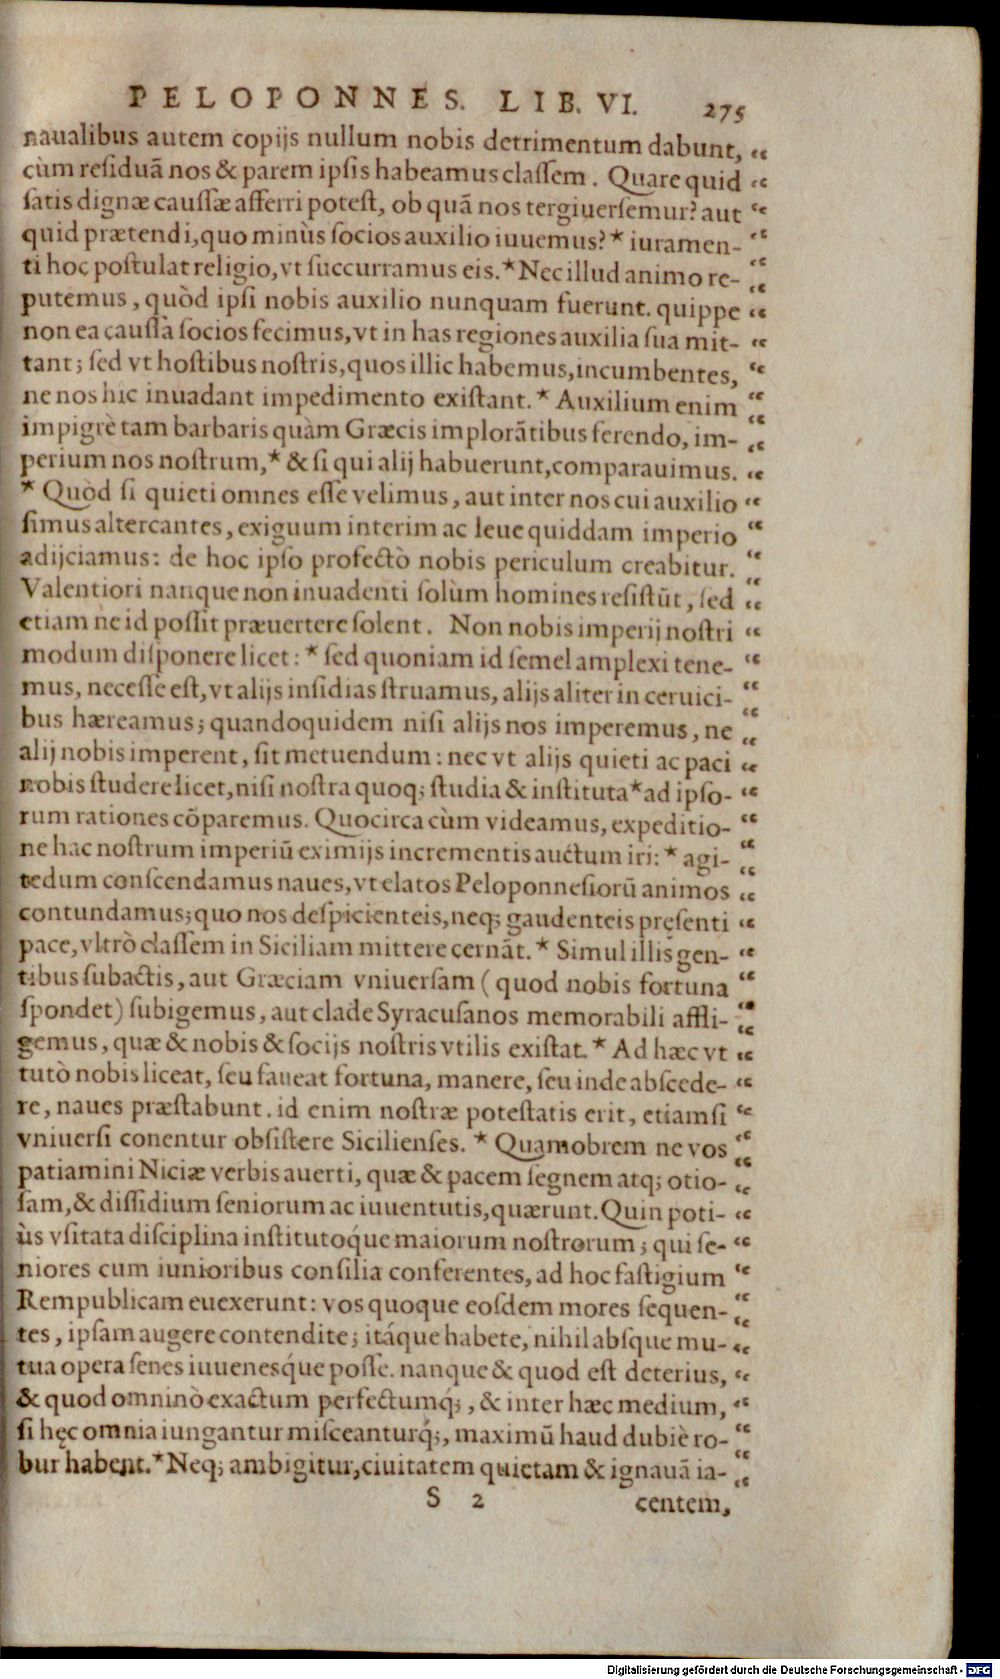 PELOPONNES. LIB. VI. 275
naualibus autem copijs nullum nobis detrimentum dabunt, “
cùm residuã nos & parem ipsis habeamus classem. Quare quid “
satis dignæ caussæ afferri potest, ob quã nos tergiuersemur? aut “
quid prætendi, quo minùs socios auxilio iuuemus? * iuramen- “
ti hoc postulat religio, vt succurramus eis. * Nec illud animo re- “
putemus, quòd ipsi nobis auxilio nunquam fuerunt. quippe “
non ea caussà socios fecimus, vt in has regiones auxilia sua mit- “
tant; sed vt hostibus nostris, quos illic habemus, incumbentes, “
ne nos hic inuadant impedimento existant. * Auxilium enim “
impigrè tam barbaris quàm Græcis implorãtibus ferendo, im- “
perium nos nostrum, * & si qui alij habuerunt, comparauimus. “
* Quòd si quieti omnes esse velimus, aut inter nos cui auxilio “
simus altercantes, exiguum interim ac leue quiddam imperio “
adijciamus: de hoc ipso profectò nobis periculum creabitur. “
Valentiori nanque non inuadenti solùm homines resistũt, sed “
etiam ne id possit præuertere solent. Non nobis imperij nostri “
modum disponere licet: * sed quoniam id semel amplexi tene- “
mus, necesse est, vt alijs insidias struamus, alijs aliter in ceruici- “
bus hæreamus; quandoquidem nisi alijs nos imperemus, ne “
alij nobis imperent, sit metuendum: nec vt alijs quieti ac paci “
nobis studere licet, nisi nostra quoq; studia & instituta * ad ipso- “
rum rationes cõparemus. Quocirca cùm videamus, expeditio- “
ne hac nostrum imperiũ eximijs incrementis auctum iri: * agi- “
tedum conscendamus naues, vt elatos Peloponnesiorũ animos “
contundamus; quo nos despicienteis, neq; gaudenteis pręsenti “
pace, vltrò classem in Siciliam mittere cernãt. * Simul illis gen- “
tibus subactis, aut Græciam vniuersam (quod nobis fortuna “
spondet) subigemus, aut clade Syracusanos memorabili affli- “
gemus, quæ & nobis & socijs nostris vtilis existat. * Ad hæc vt “
tutò nobis liceat, seu faueat fortuna, manere, seu inde abscede- “
re, naues præstabunt. id enim nostræ potestatis erit, etiamsi “
vniuersi conentur obsistere Sicilienses. * Quamobrem ne vos “
patiamini Niciæ verbis auerti, quæ & pacem segnem atq; otio- “
sam, & dissidium seniorum ac iuuentutis, quærunt. Quin poti- “
ùs vsitata disciplina institutoq́ue maiorum nostrorum; qui se- “
niores cum iunioribus consilia conferentes, ad hoc fastigium “
Rempublicam euexerunt: vos quoque eosdem mores sequen- “
tes, ipsam augere contendite; itáque habete, nihil absque mu- “
tua opera senes iuuenesq́ue posse. nanque & quod est deterius, “
& quod omninò exactum perfectumq́;, & inter hæc medium, “
si hęc omnia iungantur misceanturq́;, maximũ haud dubiè ro- “
bur habent. * Neq; ambigitur, ciuitatem quietam & ignauã ia- “
S 2 centem,
Digitalisierung gefördert durch die Deutsche Forschungsgemeinschaft - DFG